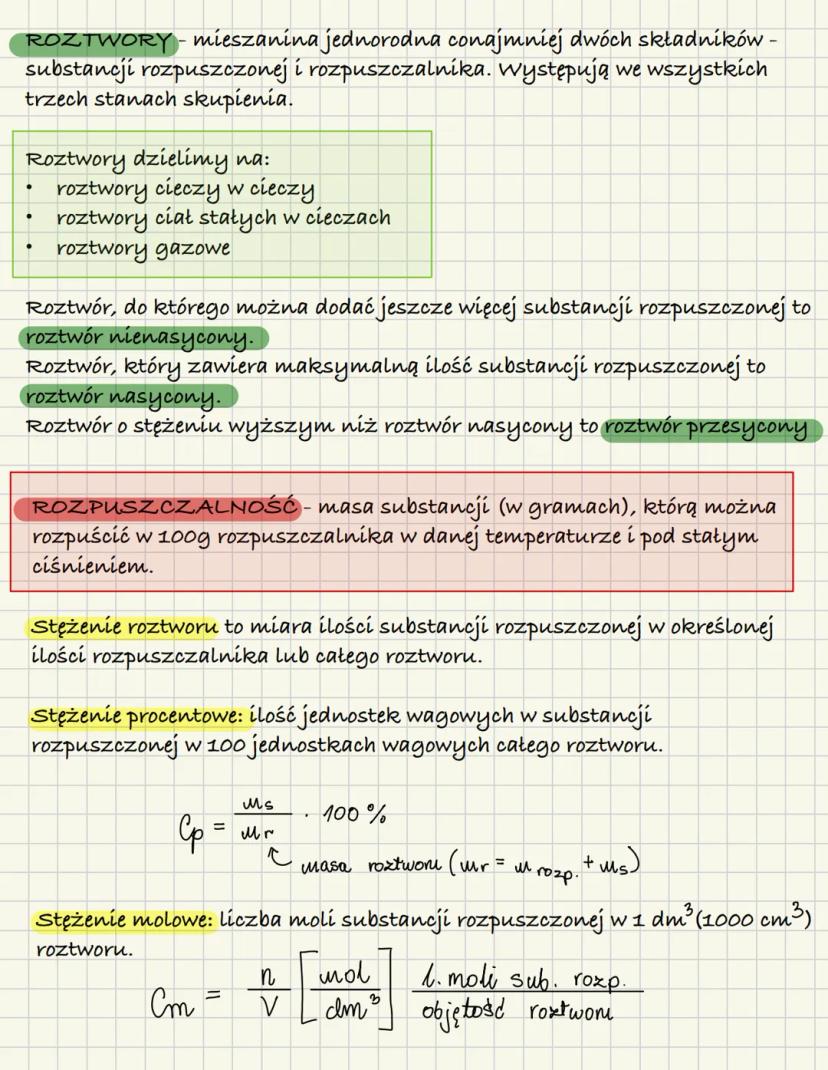 ROZTWORY - mieszanina jednorodna conajmniej dwóch składników -
substancji rozpuszczonej i rozpuszczalnika. Występują we wszystkich
trzech stanach skupienia.
Roztwory dzielimy na:
• roztwory cieczy w cieczy
• roztwory ciał stałych w cieczach
• roztwory gazowe
Roztwór, do którego można dodać jeszcze więcej substancji rozpuszczonej to
roztwór nienasycony.
Roztwór, który zawiera maksymalną ilość substancji rozpuszczonej to
roztwór nasycony.
Roztwór o stężeniu wyższym niż roztwór nasycony to roztwór przesycony
ROZPUSZCZALNOŚĆ - masa substancji (w gramach), którą można
rozpuścić w 100g rozpuszczalnika w danej temperaturze i pod stałym
ciśnieniem.
Stężenie roztworu to miara ilości substancji rozpuszczonej w określonej
ilości rozpuszczalnika lub całego roztworu.
Stężenie procentowe: ilość jednostek wagowych w substancji
rozpuszczonej w 100 jednostkach wagowych całego roztworu.
Cp = ms / mr · 100 %
masa roztworu (mr = m rozp. + ms)
Stężenie molowe: liczba moli substancji rozpuszczonej w 1 dm³ (1000 cm³)
roztworu.
Cm = n / V [mol / dm³] l. moli sub. rozp. / objętość roztworu